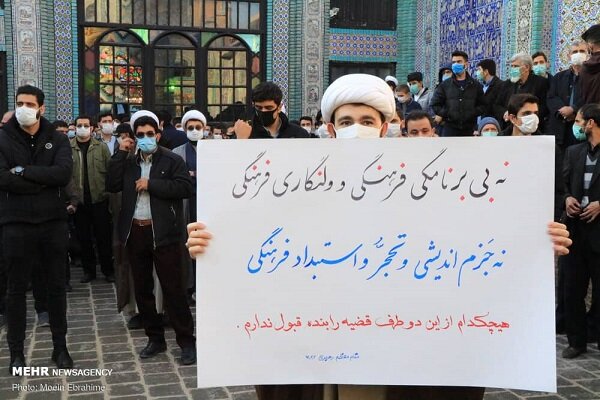 نه بی برنامگی فرهنگی و ولنگاری فرهنگی
نه جَزم اندیشی و تحجّر و استبداد فرهنگی
هیچکدام از این دو طرف قضیه را بنده قبول ندارم .
مقام معظم رهبری
MEHR NEWSAGENCY
Photo: Moein Ebrahimi